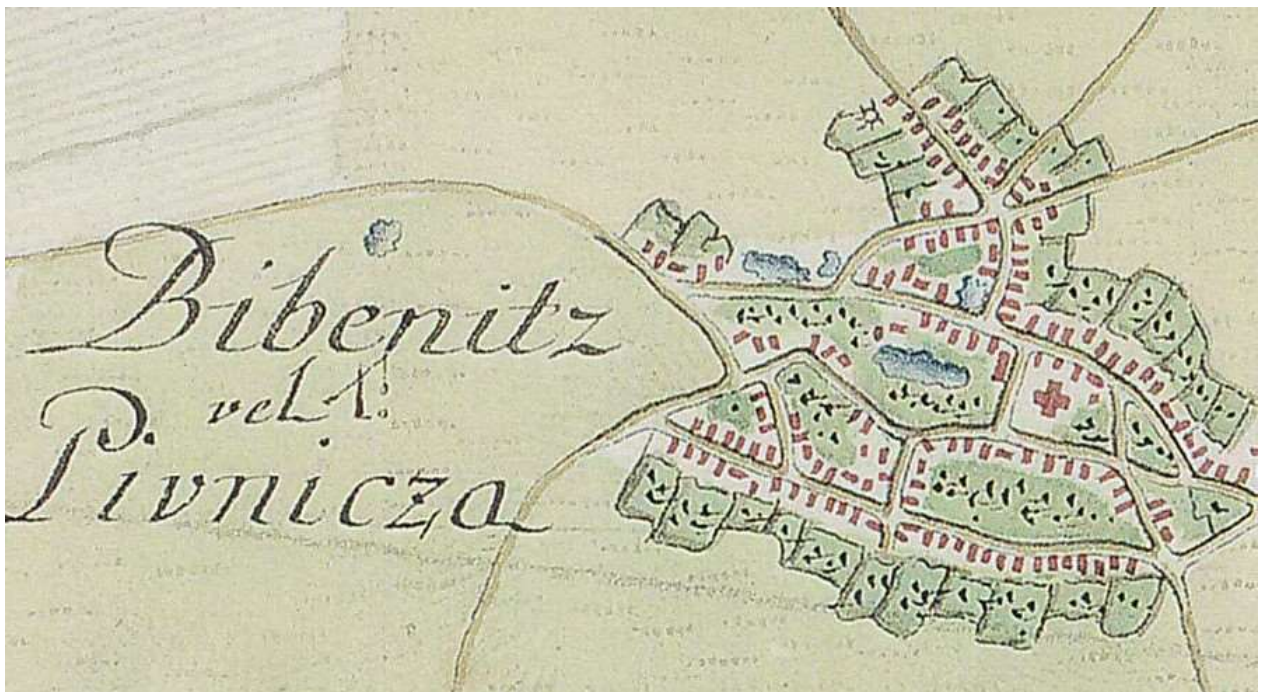 Bibenitz
vel
Pivnicza